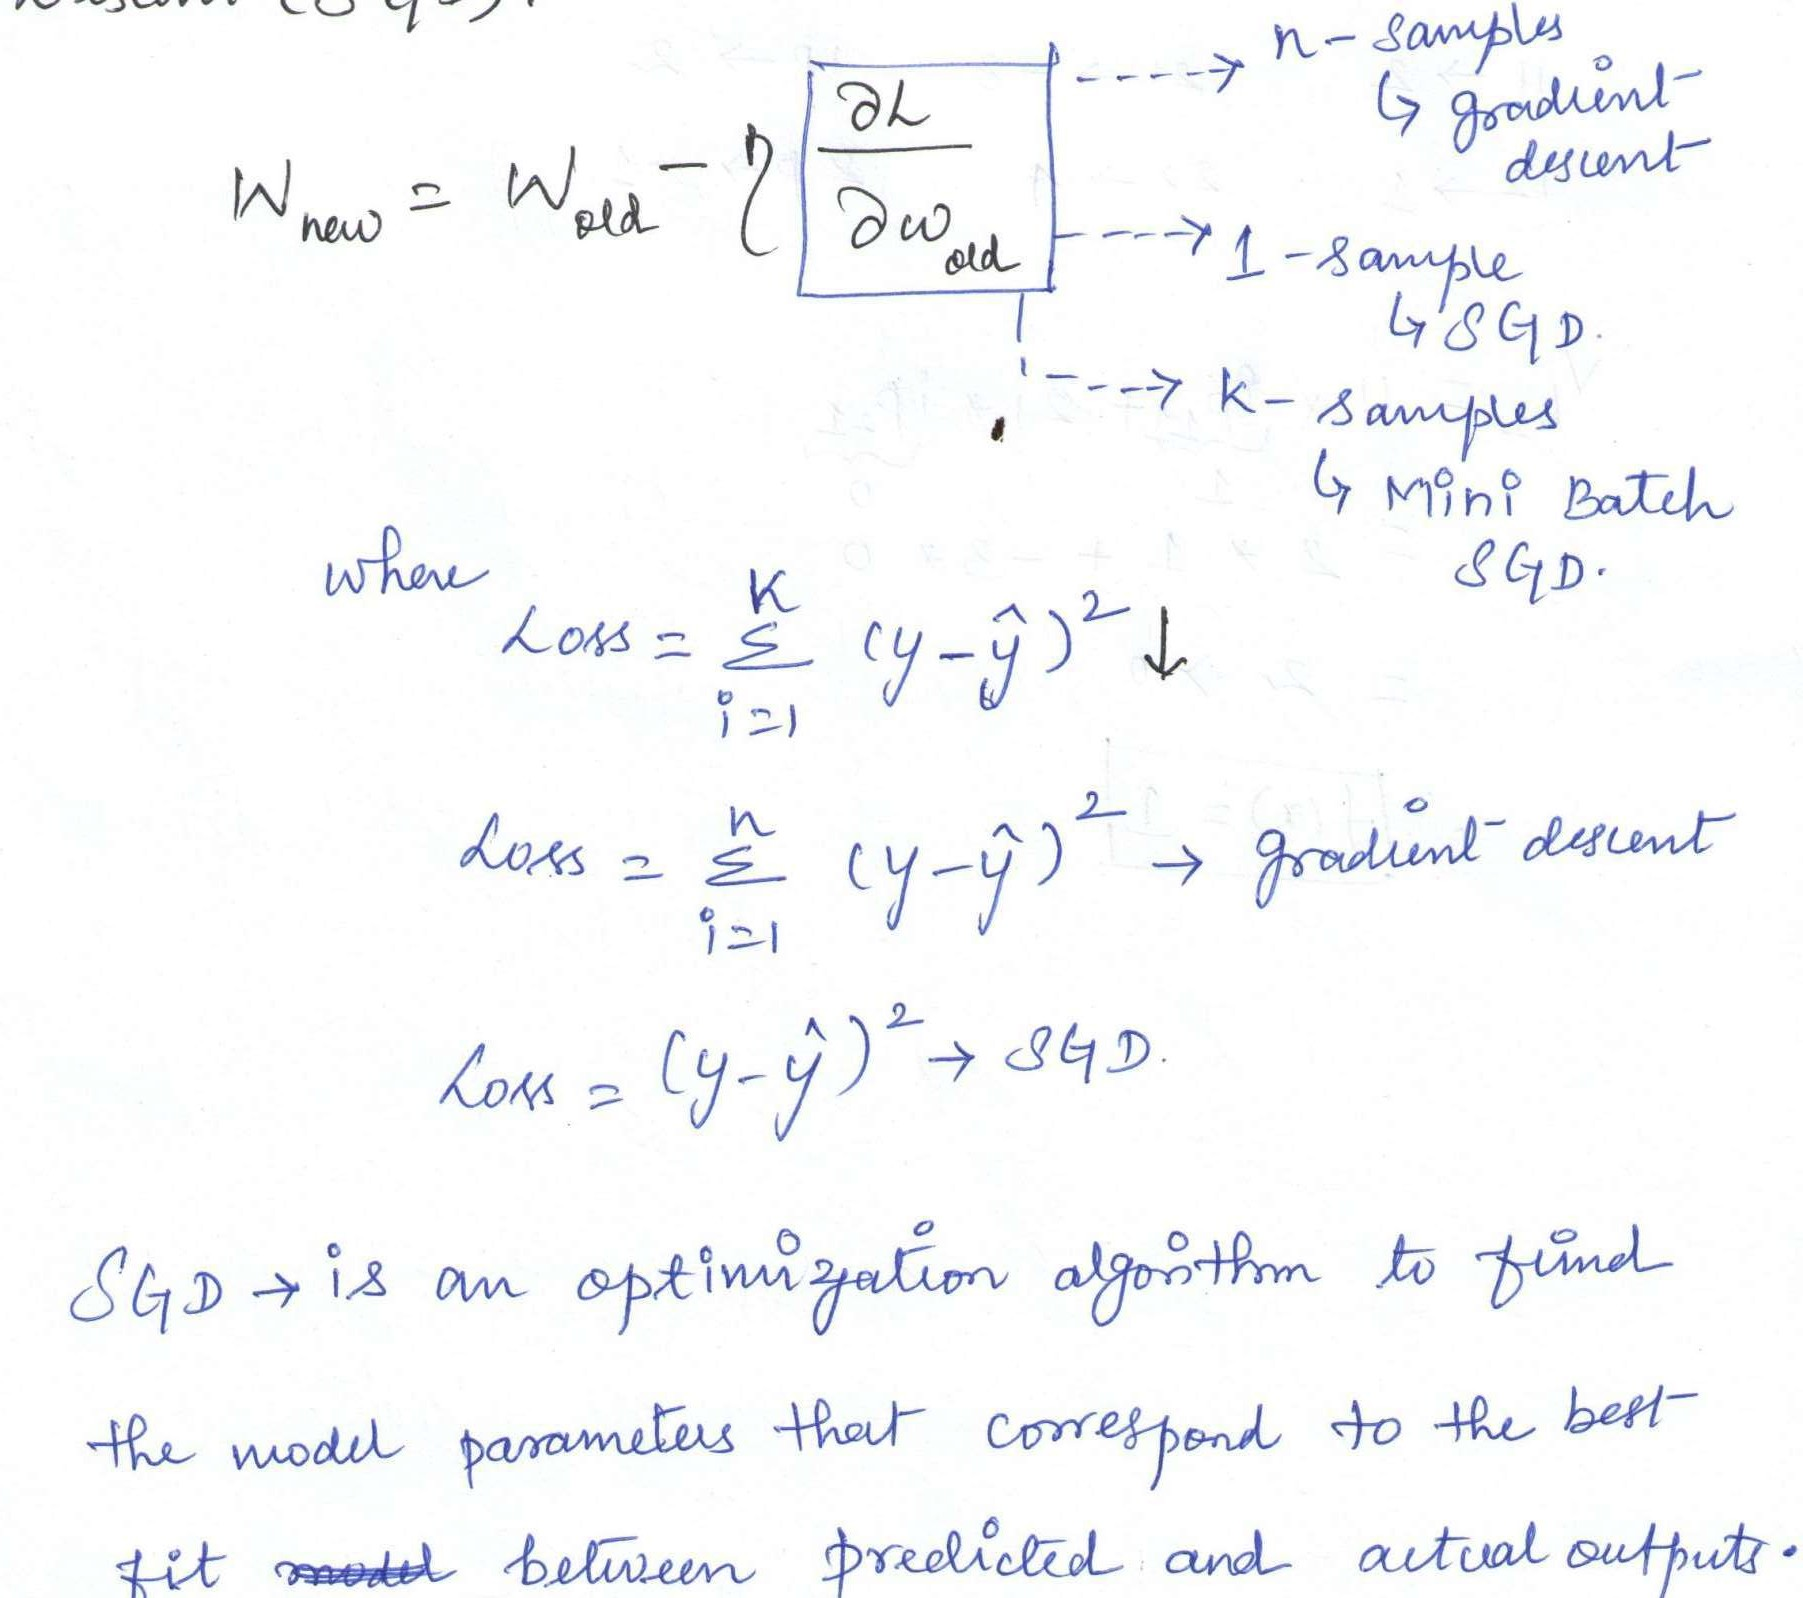 W new = W old - η ∂L / ∂w old
n - samples
↳ gradient
descent
1 - sample
↳ SGD.
K - samples
↳ Mini Batch
SGD.
where
Loss = K Σ i=1 (y - ŷ)² ↓
Loss = n Σ i=1 (y - ŷ)² → gradient descent
Loss = (y - ŷ)² → SGD.
SGD → is an optimization algorithm to find
the model parameters that correspond to the best
fit between predicted and actual outputs.